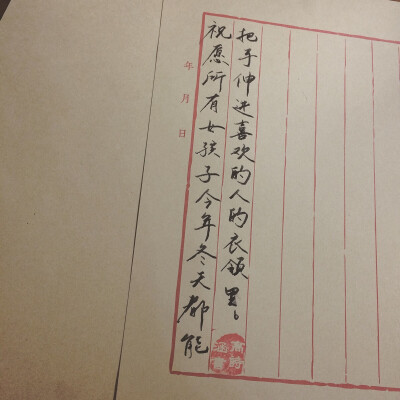 年月日
祝愿所有女孩子今年冬天都能
把手伸进喜欢的人的衣领里。